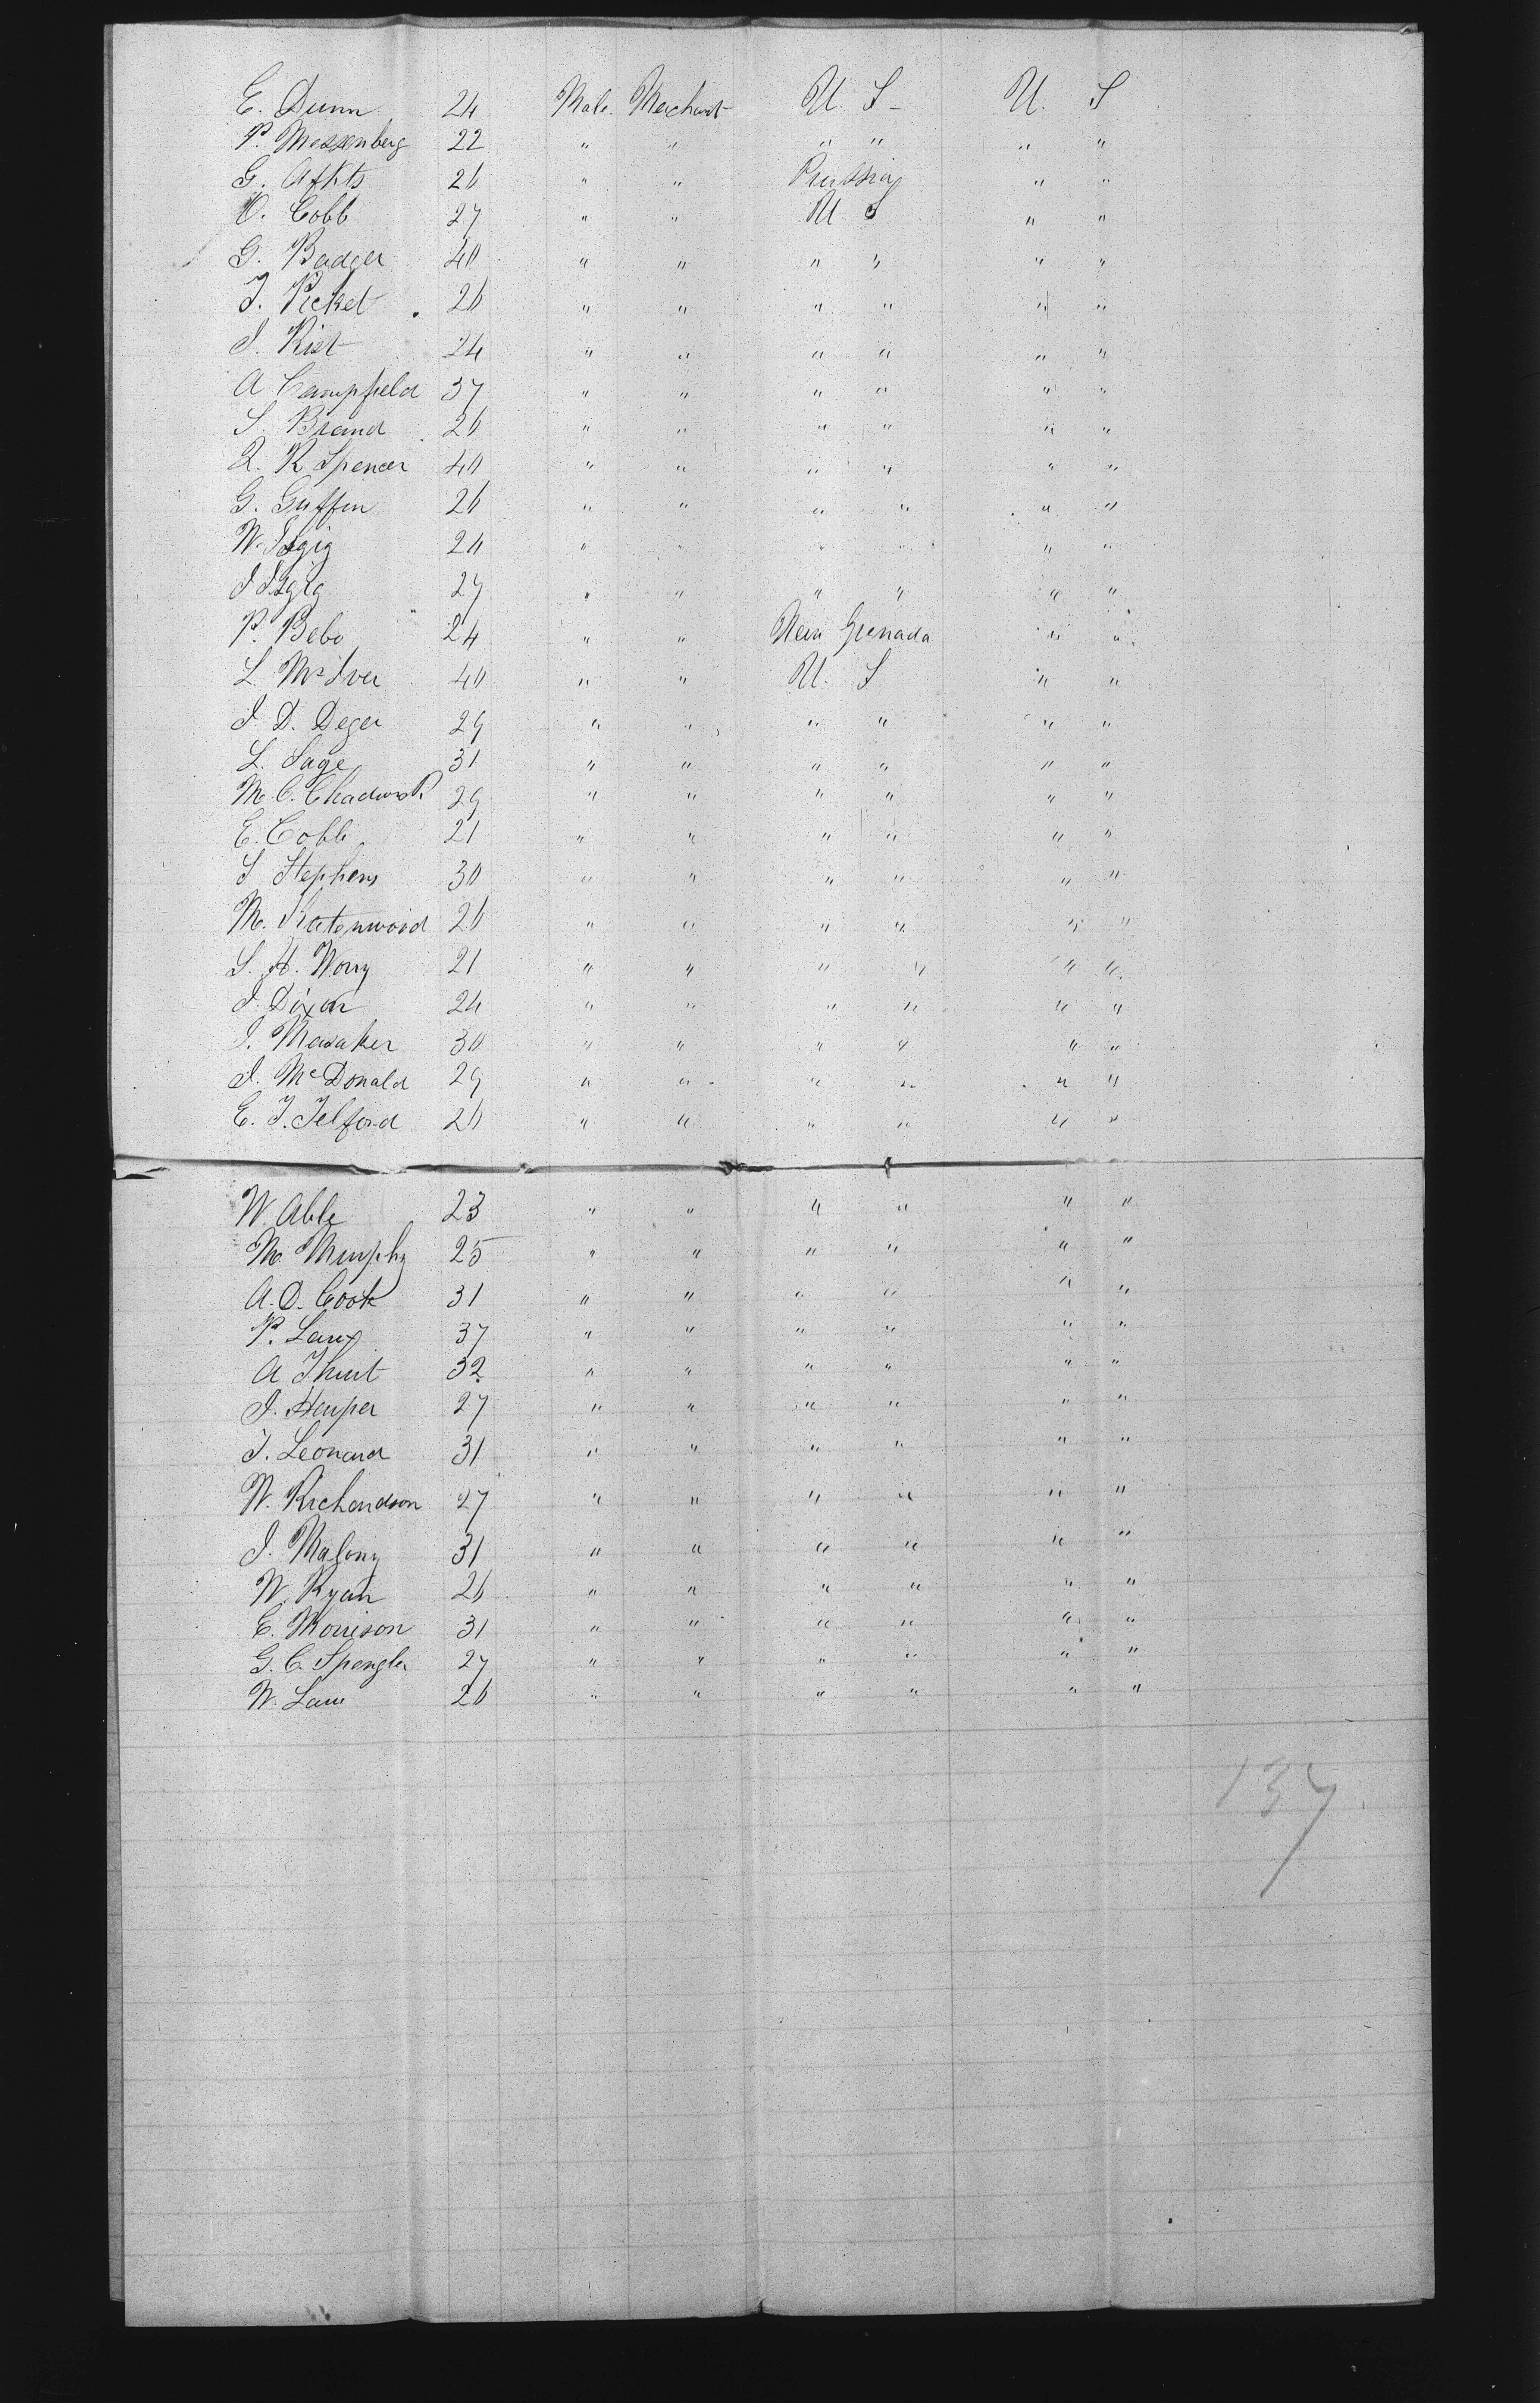 E. Dunn 24 Male Merchant U. S - U. S
P. Messenberg 22 " " " " " "
G. 26 " " Prussia " "
O. Cobb 27 " " U. S " "
G. Badger 40 " " " " " "
T. Picket 26 " " " " " "
J. Rist 24 " " " " " "
A Campfield 37 " " " " " "
S. Brand 26 " " " " " "
R. K Spencer 40 " " " " " "
G. Guffin 26 " " " " " "
W. 24 " " " " " "
J 27 " " " " " "
P. Bebo 24 " " New Grenada " "
L. McIver 40 " " U. S " "
J. D. Deger 29 " " " " " "
L. Sage 31 " " " " " "
M. C. Chadwick 29 " " " " " "
E. Cobb 21 " " " " " "
S Stephens 30 " " " " " "
M. 26 " " " " " "
S. H. Wong 21 " " " " " "
J. Dixon 24 " " " " " "
J. Mesaker 30 " " " " " "
J. McDonald 29 " " " " " "
E. T. Telford 26 " " " " " "
W. Able 23 " " " " " "
M. Murphy 25 " " " " " "
A. D. Cook 31 " " " " " "
P. Laux 37 " " " " " "
A 32 " " " " " "
J. Harper 27 " " " " " "
T. Leonard 31 " " " " " "
W. Richardson 27 " " " " " "
J. Malony 31 " " " " " "
W. Ryan 26 " " " " " "
E. Morrison 31 " " " " " "
G. C. Spengler 27 " " " " " "
W. Law 26 " " " " " "
137